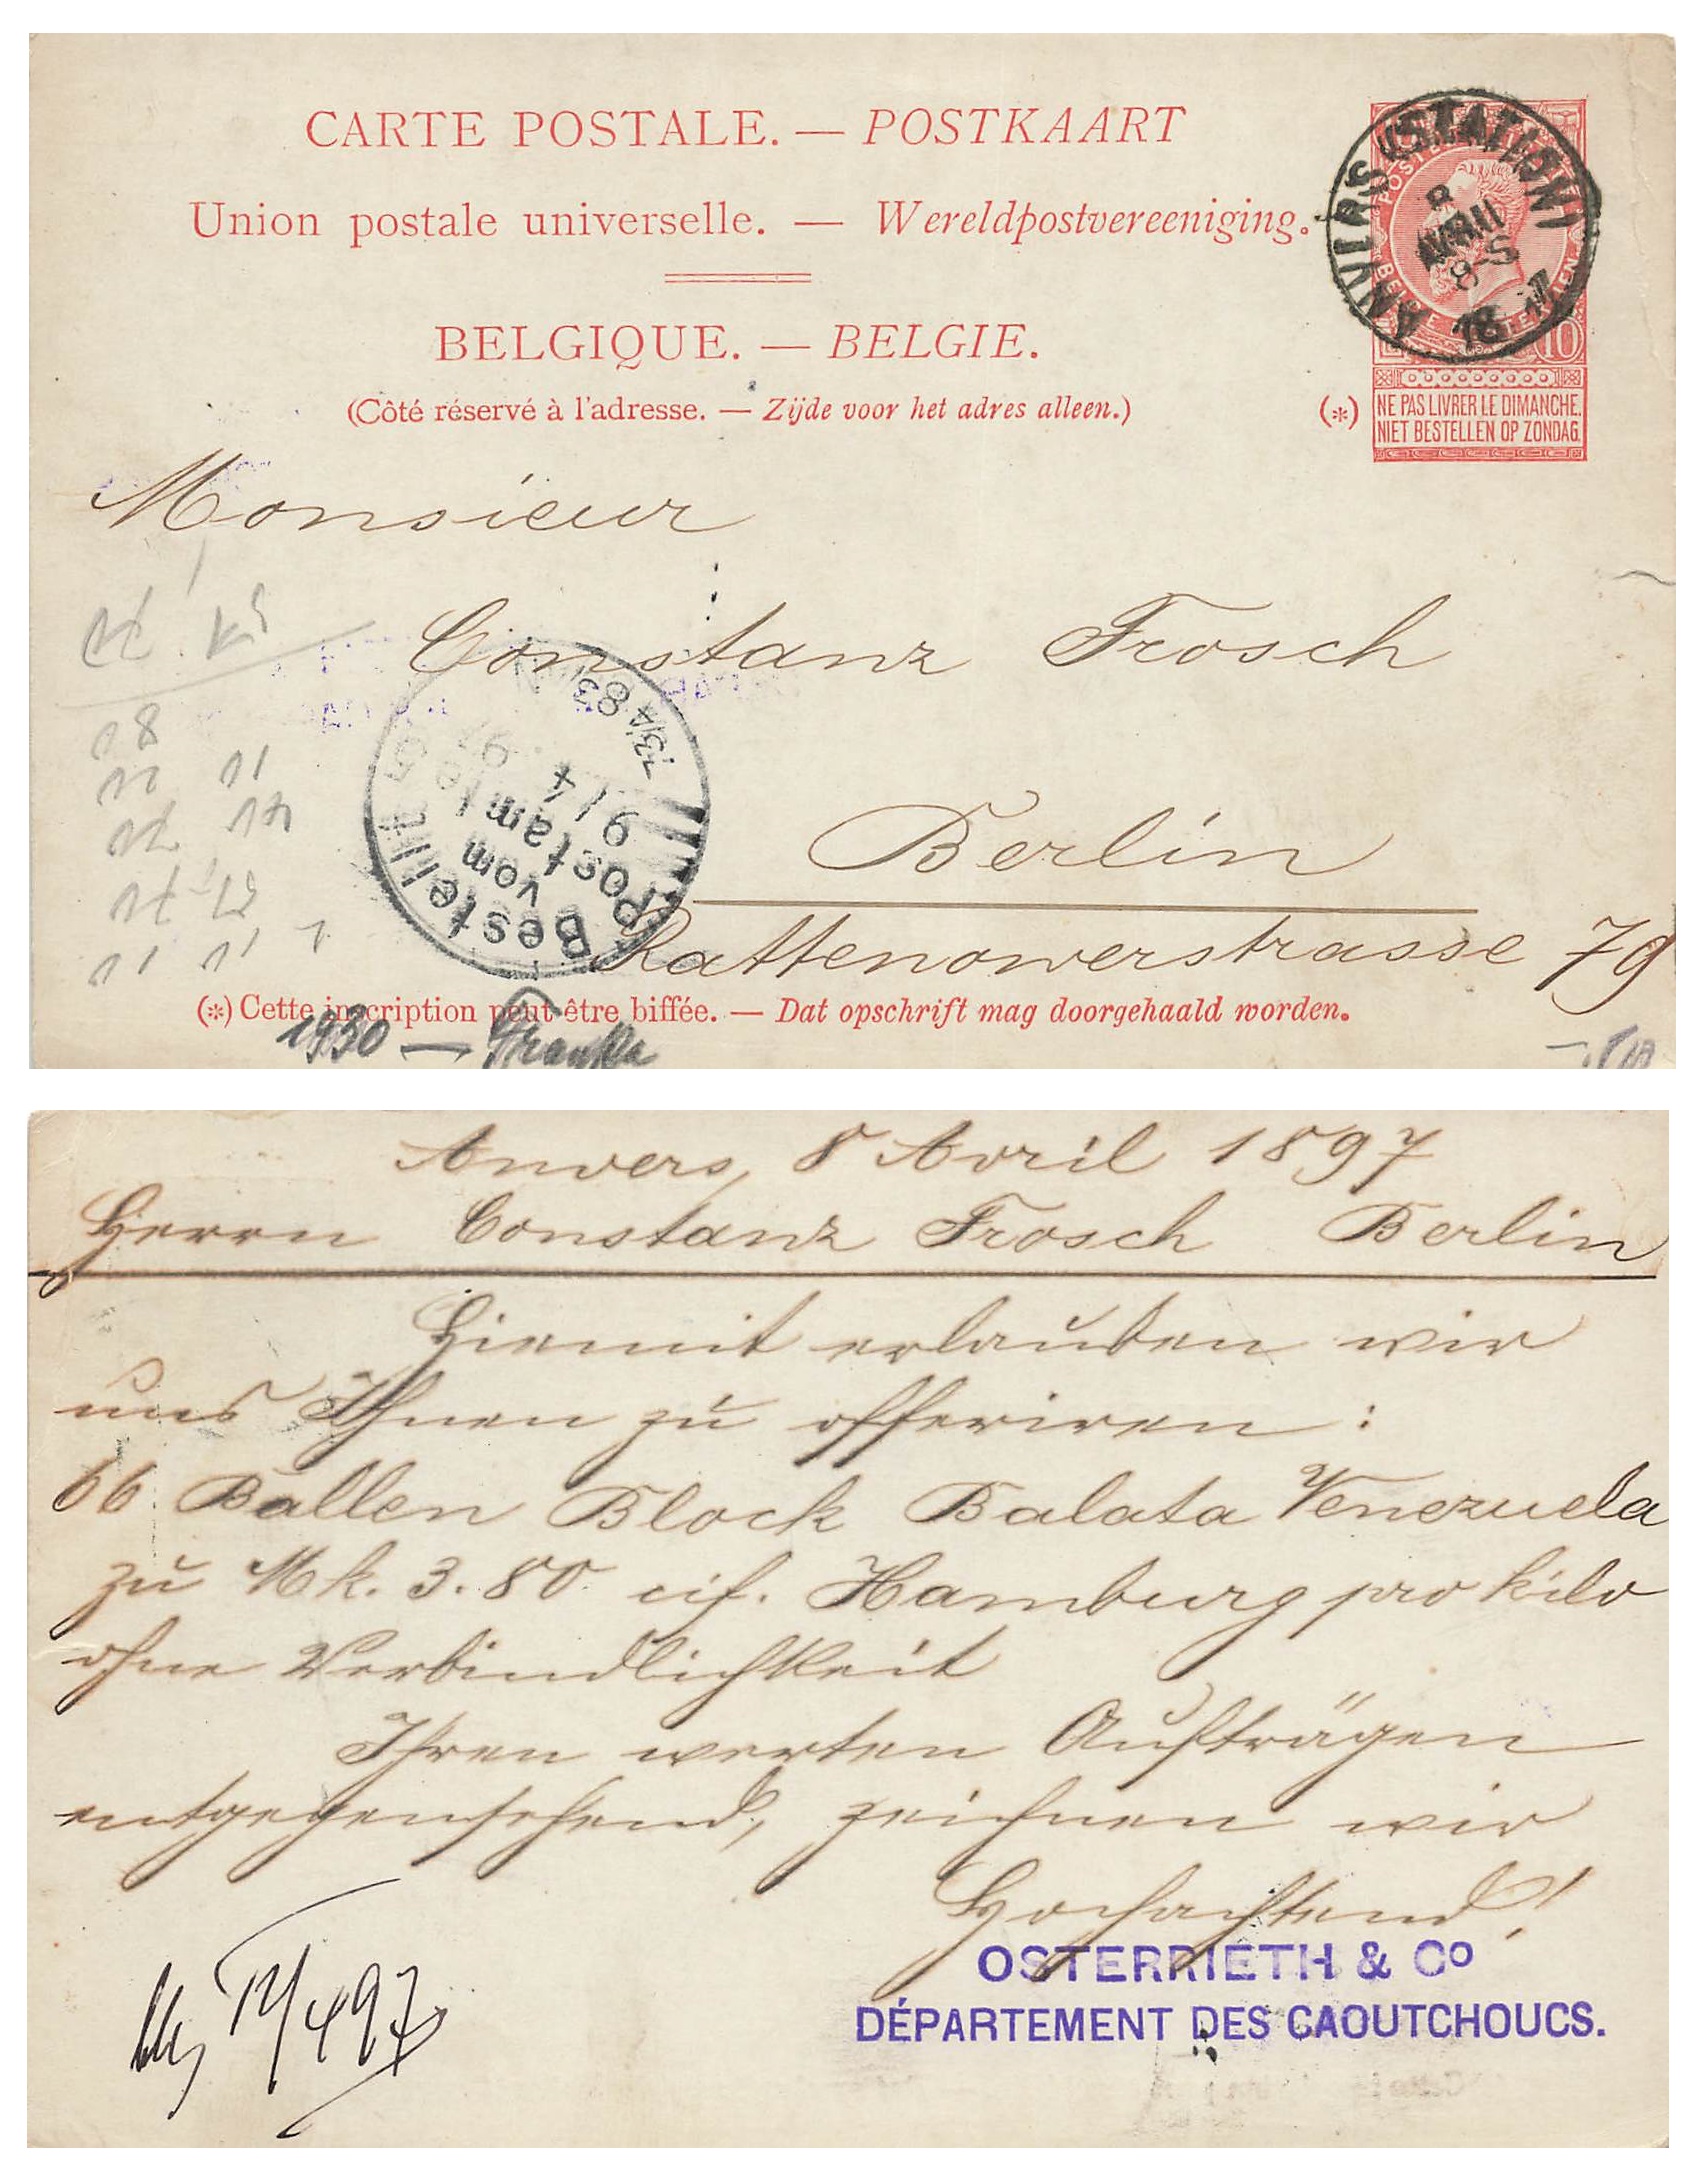 CARTE POSTALE. — POSTKAART
Union postale universelle. — Wereldpostvereeniging.
BELGIQUE. — BELGIE.
(Côté réservé à l'adresse. — Zijde voor het adres alleen.)
ANVERS (STATION)
8
AVRIL
8-S
10
(*)
NE PAS LIVRER LE DIMANCHE.
NIET BESTELLEN OP ZONDAG.
Monsieur
Constanz Frosch
Berlin
Rattenowerstrasse 79
Bestellt
vom
Postamte 5
9/4
97
(*) Cette inscription peut être biffée. — Dat opschrift mag doorgehaald worden.
18
11
11 11
1930 —
Anvers, 8 Avril 1897
Herrn Constanz Frosch Berlin
Hiemit erlauben wir
uns Ihnen zu offeriren:
66 Ballen Block Balata Venezuela
zu Mk. 3.80 cif. Hamburg pro Kilo
ohne Verbindlichkeit
Ihren werten Aufträgen
entgegensehend, zeichnen wir
Hochachtend!
OSTERRIETH & Co
DÉPARTEMENT DES CAOUTCHOUCS.
12/4 97